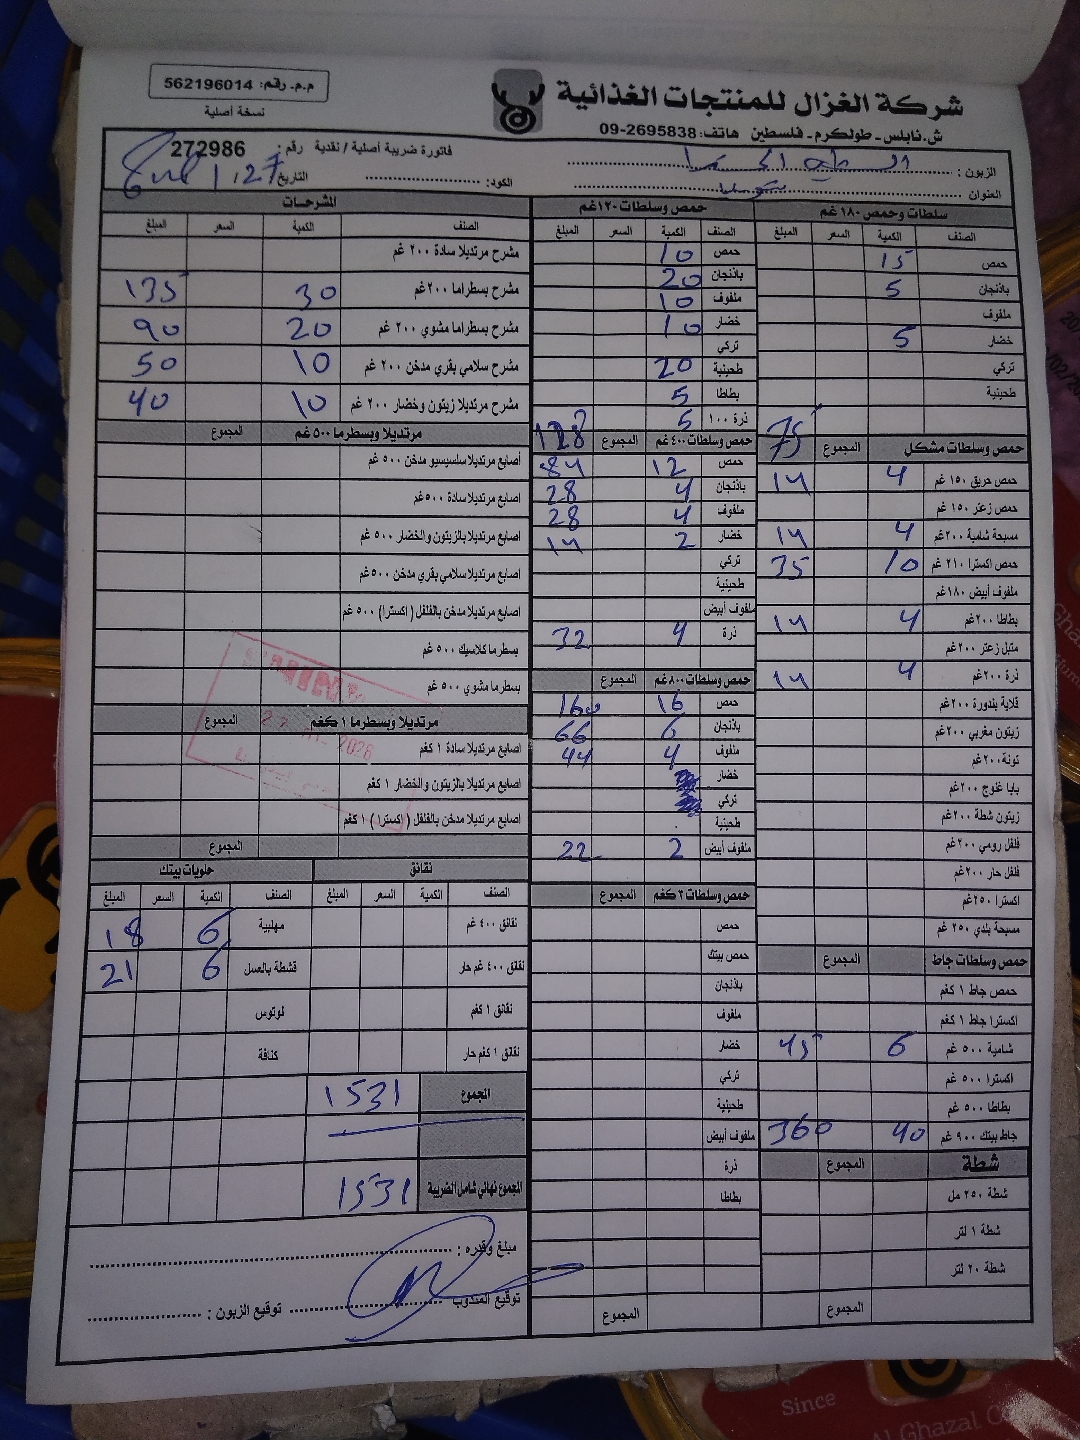 م.م. رقم: 562196014
نسخة أصلية
شركة الغزال للمنتجات الغذائية
ش.نابلس - طولكرم - فلسطين هاتف: 09-2695838
فاتورة ضريبة أصلية / نقدية رقم: 272986
الزبون :
العنوان
الكود:
التاريخ
سلطات وحمص ١٨٠ غم
الصنف الكمية السعر المبلغ
حمص 15
باذنجان 5
ملفوف
خضار 5
تركي
طحينية
75
حمص وسلطات مشكل المجموع
حمص حريق ١٥٠ غم 4 14
حمص زعتر ١٥٠ غم
مسبحة شامية ٢٠٠غم 4 14
حمص اكسترا ٢١٠ غم 10 35
ملفوف أبيض ١٨٠غم
بطاطا ٢٠٠غم 4 14
متبل زعتر ٢٠٠غم
ذرة ٢٠٠غم 4 14
قلاية بندورة ٢٠٠غم
زيتون مغربي ٢٠٠غم
تونة ٢٠٠غم
بابا غنوج ٢٠٠غم
زيتون شطة ٢٠٠غم
فلفل رومي ٢٠٠غم
فلفل حار ٢٠٠غم
اكسترا ٢٥٠غم
مسبحة بلدي ٢٥٠ غم
حمص وسلطات جاط المجموع
حمص جاط ١ كغم
اكسترا جاط ١ كغم
شامية ٥٠٠ غم 6 45
اكسترا ٥٠٠ غم
بطاطا ٥٠٠ غم
جاط بيتك ٩٠٠ غم 40 360
شطة المجموع
شطة ٢٥٠ مل
شطة ١ لتر
شطة ٢٠ لتر
المجموع
حمص وسلطات ١٢٠غم
الصنف الكمية السعر المبلغ
حمص 10
باذنجان 20
ملفوف 10
خضار 10
تركي
طحينية 20
بطاطا 5
ذرة ١٠٠ 5 128
حمص وسلطات ٤٠٠غم المجموع
حمص 12 84
باذنجان 4 28
ملفوف 4 28
خضار 2 14
تركي
طحينية
ملفوف أبيض
ذرة 4 32
حمص وسلطات ٨٠٠غم المجموع
حمص 16 160
باذنجان 6 66
ملفوف 4 44
خضار
تركي
طحينية
ملفوف أبيض 2 22
حمص وسلطات ٣كغم المجموع
حمص
حمص بيتك
باذنجان
ملفوف
خضار
تركي
طحينية
ملفوف أبيض
ذرة
بطاطا
المجموع
المشرحات
الصنف الكمية السعر المبلغ
مشرح مرتديلا سادة ٢٠٠ غم
مشرح بسطراما ٢٠٠غم 30 135
مشرح بسطراما مشوي ٢٠٠ غم 20 90
مشرح سلامي بقري مدخن ٢٠٠ غم 10 50
مشرح مرتديلا زيتون وخضار ٢٠٠ غم 10 40
مرتديلا وبسطرما ٥٠٠ غم المجموع
أصابع مرتديلا سلسيسيو مدخن ٥٠٠ غم
اصابع مرتديلا سادة ٥٠٠غم
اصابع مرتديلا بالزيتون والخضار ٥٠٠ غم
اصابع مرتديلا سلامي بقري مدخن ٥٠٠غم
اصابع مرتديلا مدخن بالفلفل (اكسترا) ٥٠٠ غم
بسطرما كلاسيك ٥٠٠ غم
بسطرما مشوي ٥٠٠ غم
مرتديلا وبسطرما ١ كغم المجموع
اصابع مرتديلا سادة ١ كغم
اصابع مرتديلا بالزيتون والخضار ١ كغم
اصابع مرتديلا مدخن بالفلفل (اكسترا) ١ كغم
المجموع
نقانق
الصنف الكمية السعر المبلغ
نقانق ٤٠٠ غم
نقانق ٤٠٠ غم حار
نقانق ١ كغم
نقانق ١ كغم حار
حلويات بيتك
الصنف الكمية السعر المبلغ
مهلبية 6 18
قشطة بالعسل 6 21
لوتوس
كنافة
المجموع 1531
المجموع نهائي شامل الضريبة 1531
مبلغ وقدره :
توقيع المندوب
توقيع الزبون :
Since
Al Ghazal